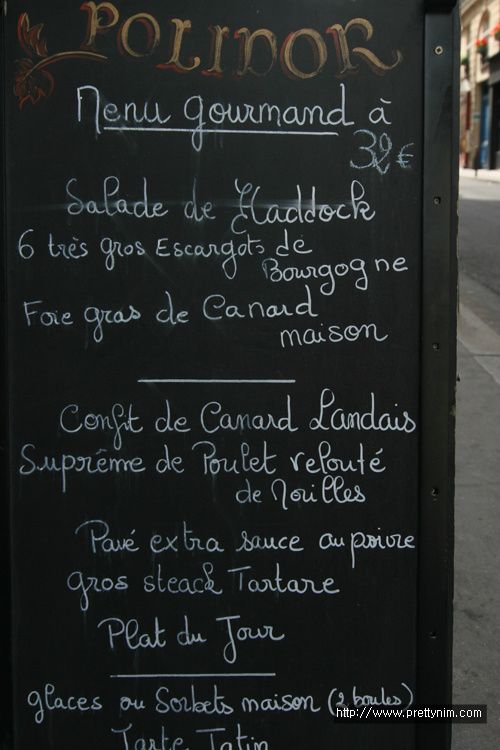 POLIDOR
Menu gourmand à
32 €
Salade de Haddock
6 très gros Escargots de
Bourgogne
Foie gras de Canard
maison
Confit de Canard Landais
Suprême de Poulet velouté
de Morilles
Pavé extra sauce au poivre
gros steack Tartare
Plat du Jour
glaces ou Sorbets maison (2 boules)
http://www.prettynim.com
Tarte Tatin